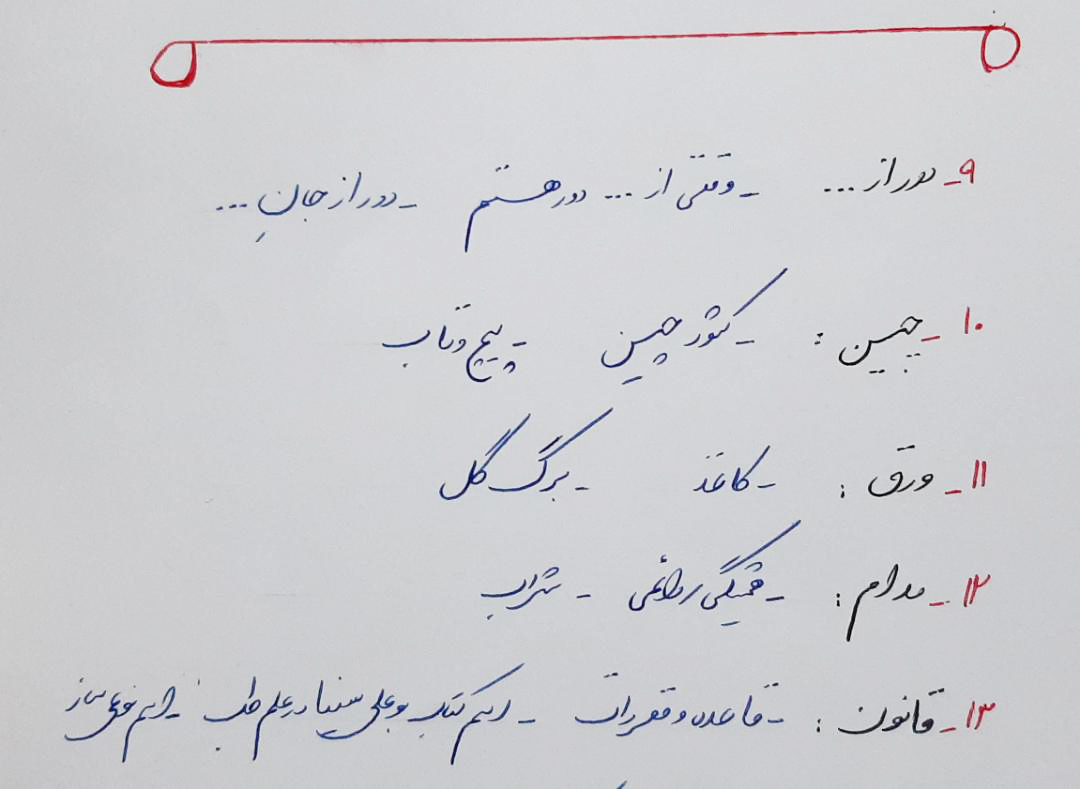 ۹- دور از ... - وقتی از ... دور هستم - دور از جانِ ...
۱۰- چین : - کشور چین - پیچ و تاب
۱۱- ورق : - کاغذ - برگ گل
۱۲- مدام : - همیشگی / دائمی - شراب
۱۳- قانون : - قاعده و مقررات - اسم کتاب بوعلی سینا در علم طب - اسم نوعی ساز